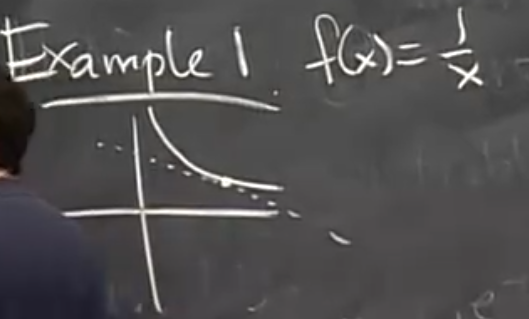 Example 1 f(x) = 1/x